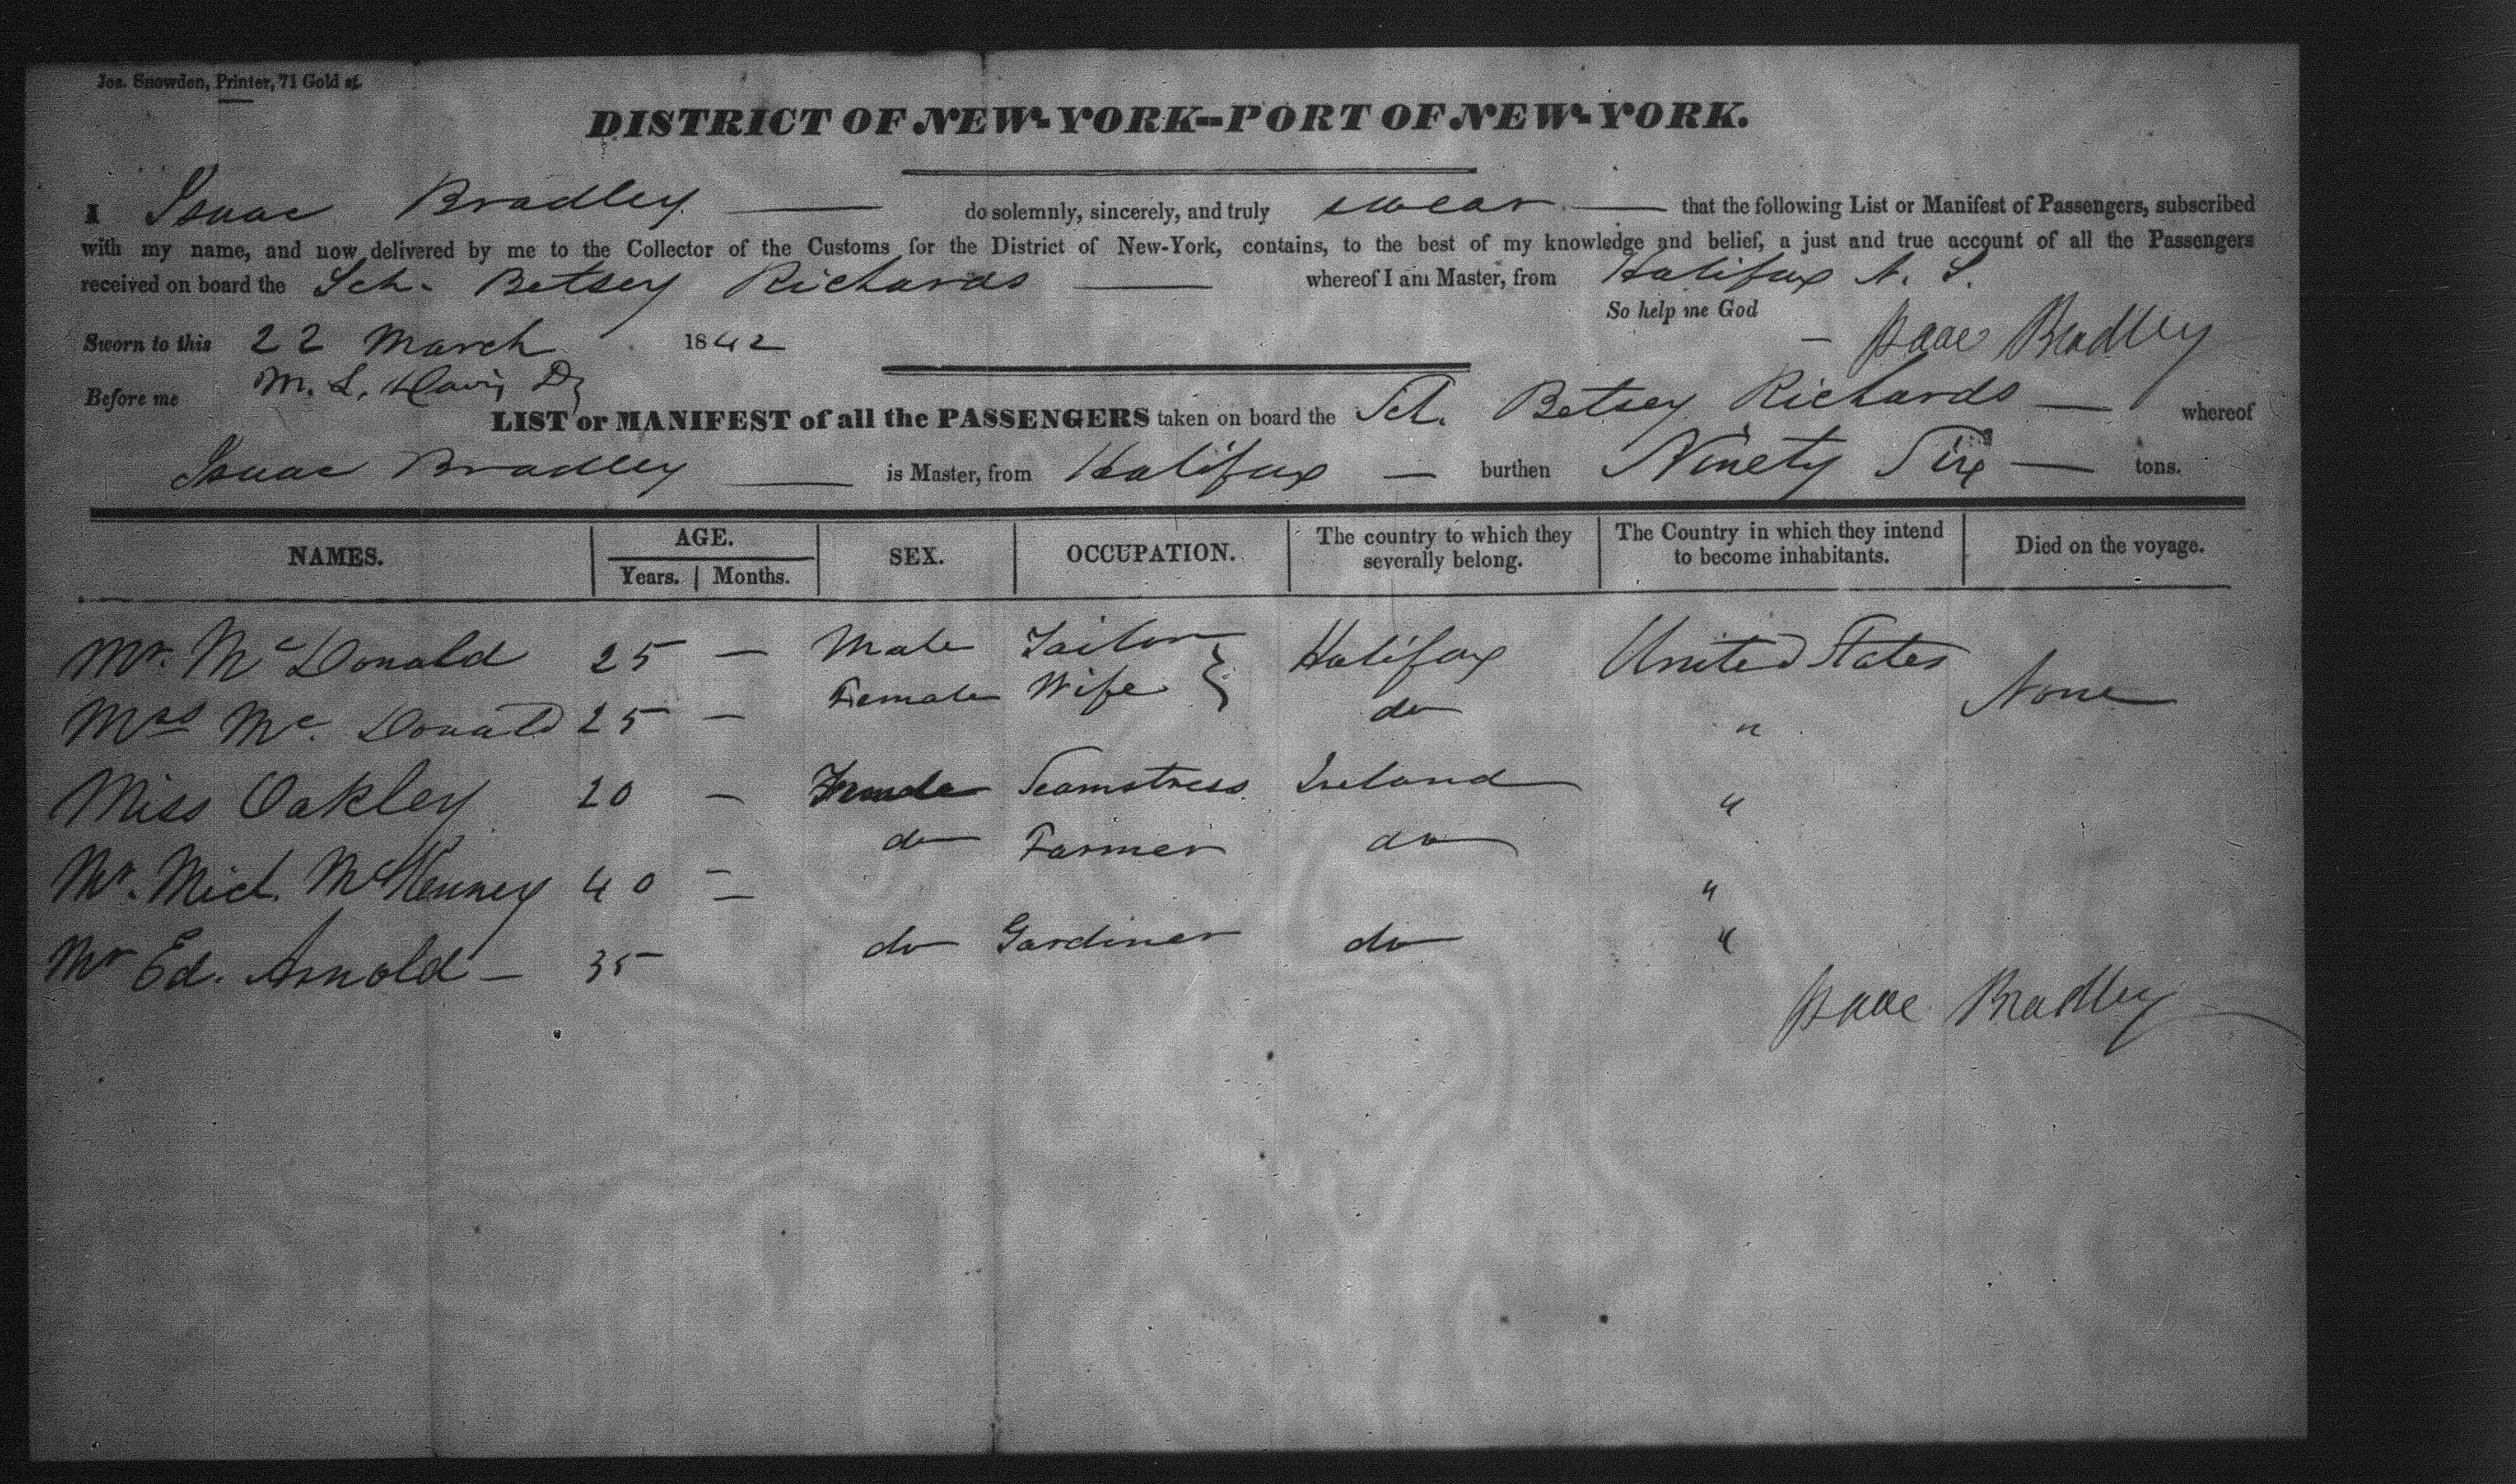 Jos. Snowden, Printer, 71 Gold st.
DISTRICT OF NEW-YORK--PORT OF NEW-YORK.
I Isaac Bradley — do solemnly, sincerely, and truly swear — that the following List or Manifest of Passengers, subscribed
with my name, and now delivered by me to the Collector of the Customs for the District of New-York, contains, to the best of my knowledge and belief, a just and true account of all the Passengers
received on board the Sch. Betsey Richards — whereof I am Master, from Halifax N. S.
So help me God
Sworn to this 22 March 1842 — Isaac Bradley
Before me M. L. Davis
LIST or MANIFEST of all the PASSENGERS taken on board the Sch. Betsey Richards — whereof
Isaac Bradley — is Master, from Halifax — burthen Ninety Six — tons.
NAMES. AGE. SEX. OCCUPATION. The country to which they severally belong. The Country in which they intend to become inhabitants. Died on the voyage.
Years. Months.
Mr. McDonald 25 — Male Tailor } Halifax United States None
Mrs Mc. Donald 25 — Female Wife do "
Miss Oakley 20 — Female Seamstress Ireland "
Mr. Mich. McKenney 40 — do Farmer do "
Mr Ed. Arnold — 35 — do Gardiner do "
Isaac Bradley